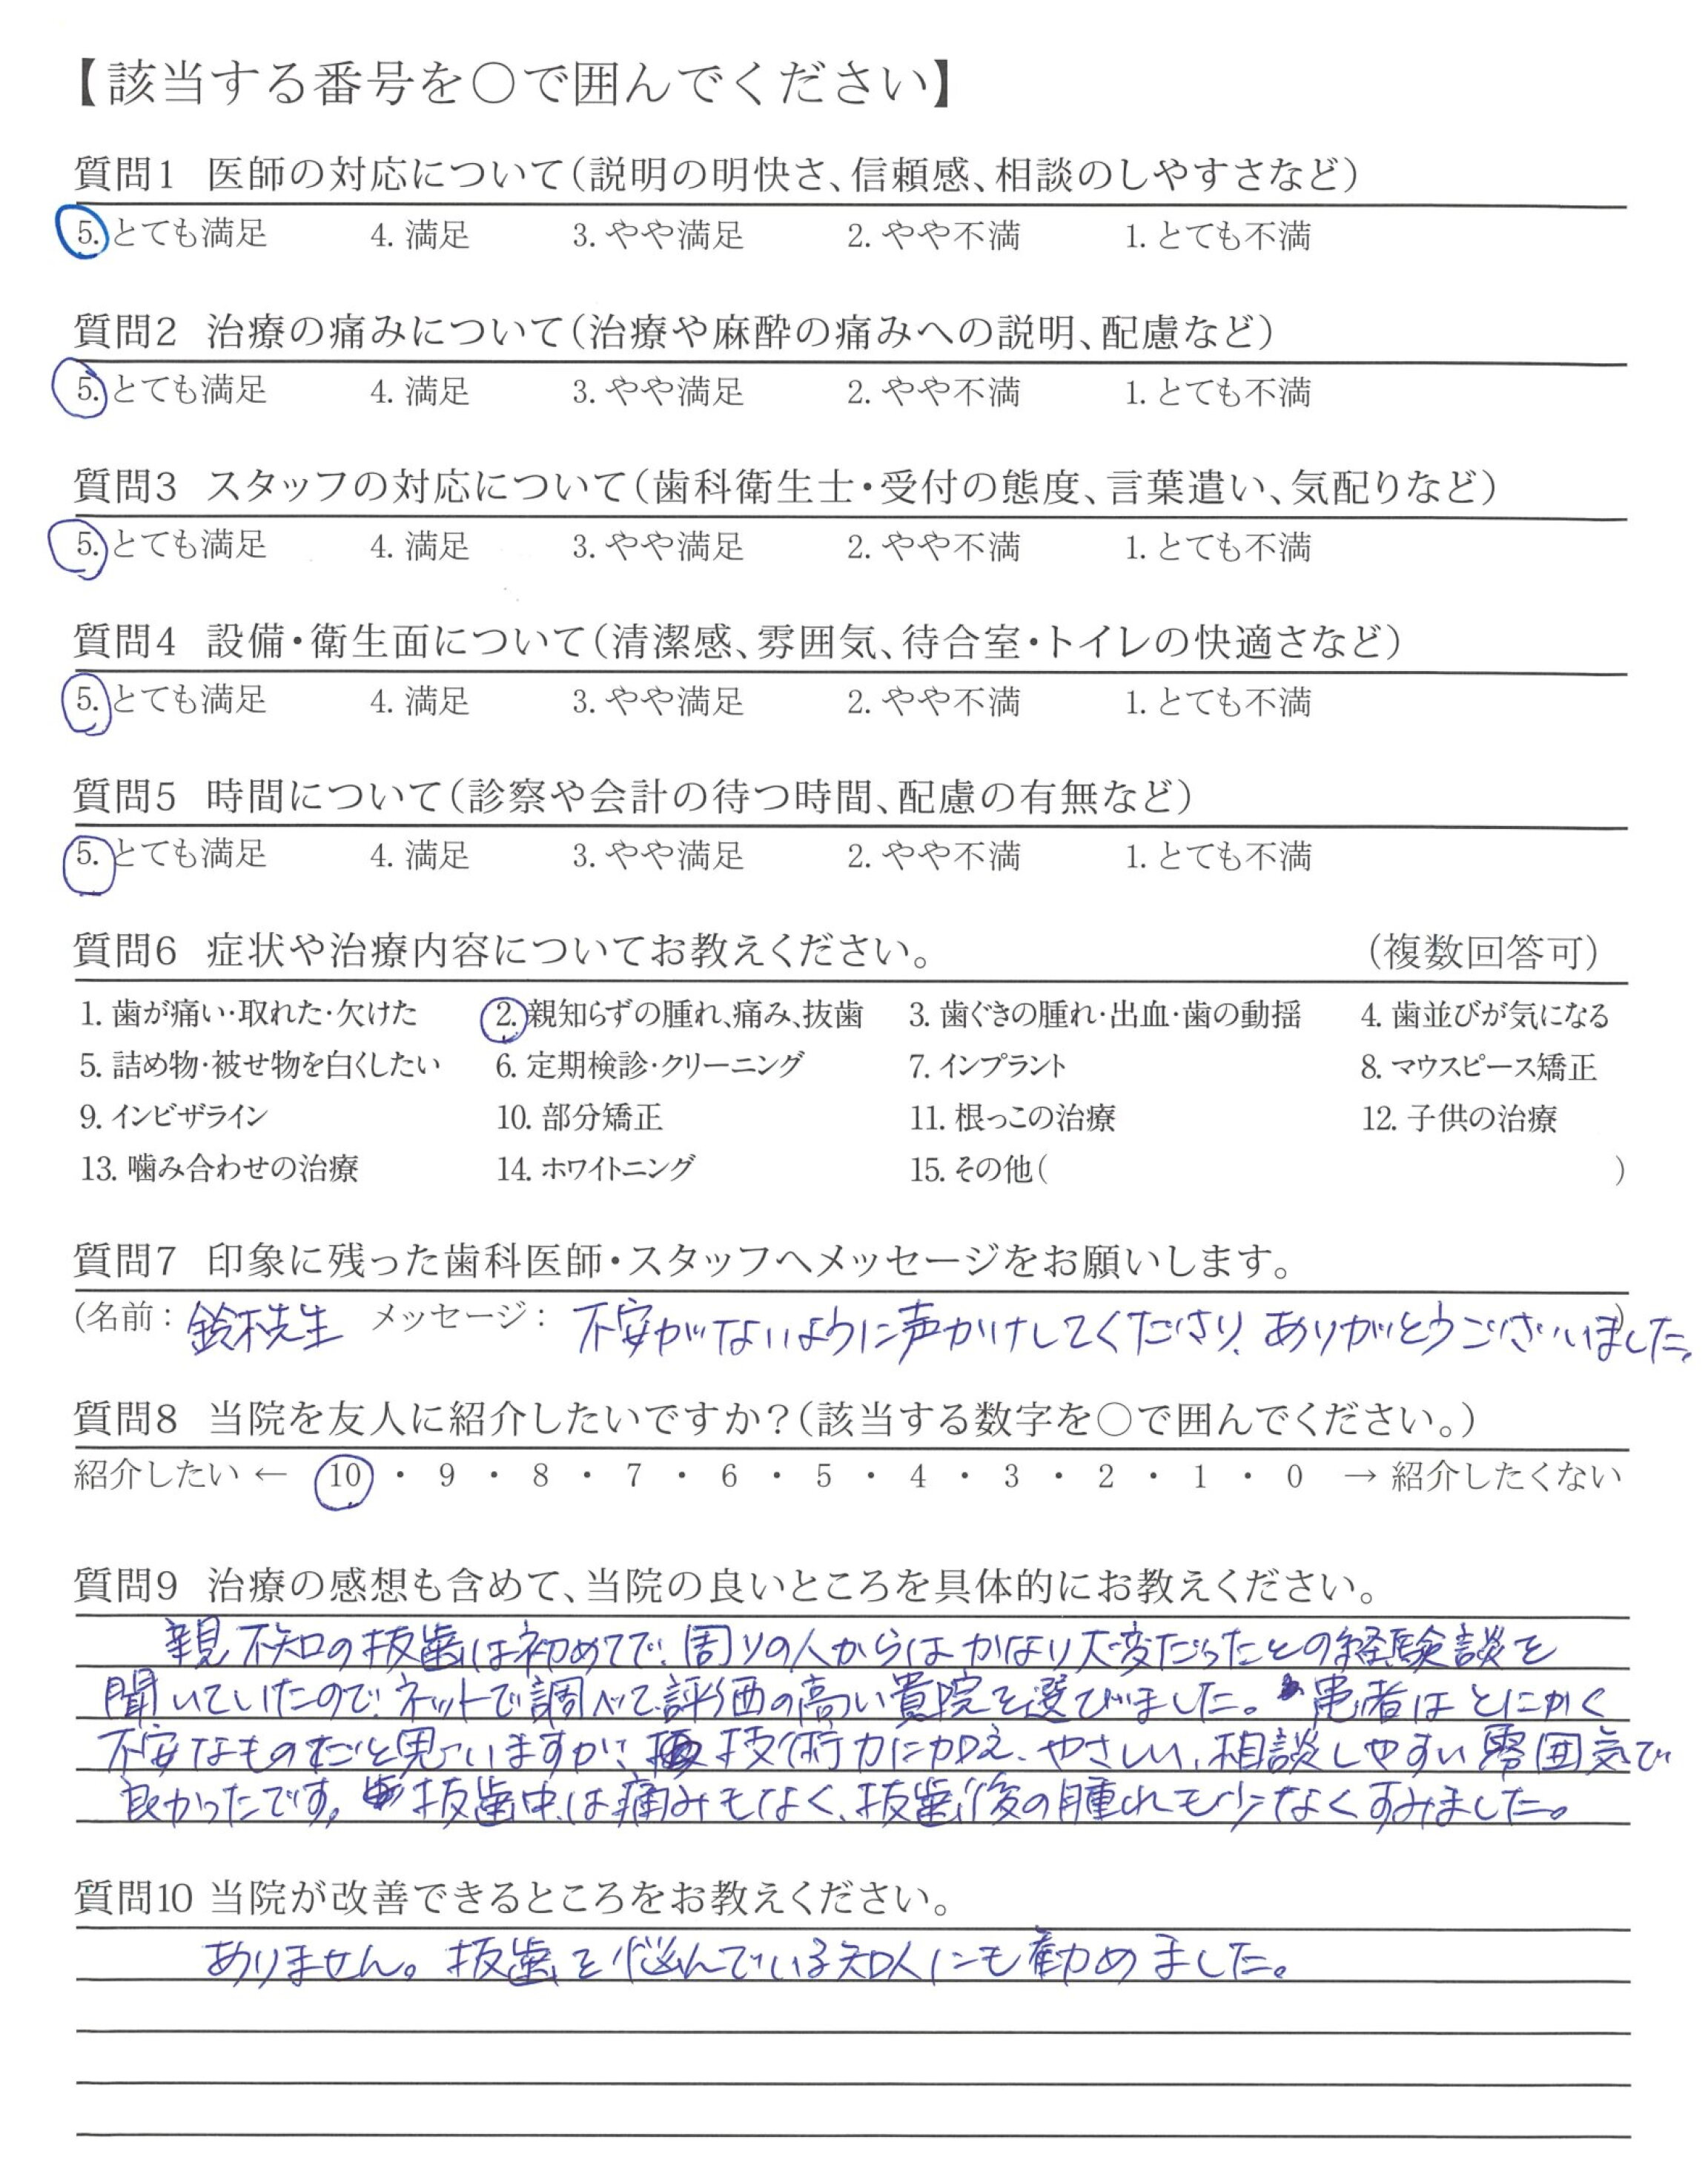 【該当する番号を○で囲んでください】
質問1 医師の対応について（説明の明快さ、信頼感、相談のしやすさなど）
5. とても満足 4. 満足 3. やや満足 2. やや不満 1. とても不満
質問2 治療の痛みについて（治療や麻酔の痛みへの説明、配慮など）
5. とても満足 4. 満足 3. やや満足 2. やや不満 1. とても不満
質問3 スタッフの対応について（歯科衛生士・受付の態度、言葉遣い、気配りなど）
5. とても満足 4. 満足 3. やや満足 2. やや不満 1. とても不満
質問4 設備・衛生面について（清潔感、雰囲気、待合室・トイレの快適さなど）
5. とても満足 4. 満足 3. やや満足 2. やや不満 1. とても不満
質問5 時間について（診察や会計の待つ時間、配慮の有無など）
5. とても満足 4. 満足 3. やや満足 2. やや不満 1. とても不満
質問6 症状や治療内容についてお教えください。 （複数回答可）
1. 歯が痛い・取れた・欠けた 2. 親知らずの腫れ、痛み、抜歯 3. 歯ぐきの腫れ・出血・歯の動揺 4. 歯並びが気になる
5. 詰め物・被せ物を白くしたい 6. 定期検診・クリーニング 7. インプラント 8. マウスピース矯正
9. インビザライン 10. 部分矯正 11. 根っこの治療 12. 子供の治療
13. 噛み合わせの治療 14. ホワイトニング 15. その他（ ）
質問7 印象に残った歯科医師・スタッフへメッセージをお願いします。
(名前： 鈴木先生 メッセージ： 不安がないように声かけしてくださり、ありがとうございました。)
質問8 当院を友人に紹介したいですか？（該当する数字を○で囲んでください。）
紹介したい ← 10 ・ 9 ・ 8 ・ 7 ・ 6 ・ 5 ・ 4 ・ 3 ・ 2 ・ 1 ・ 0 → 紹介したくない
質問9 治療の感想も含めて、当院の良いところを具体的にお教えください。
親不知の抜歯は初めてで、周りの人からはかなり大変だったとの経験談を
聞いていたので、ネットで調べて評価の高い貴院を選びました。患者はとにかく
不安なものだと思いますが、技術力に加え、やさしい、相談しやすい雰囲気で
良かったです。抜歯中は痛みもなく、抜歯後の腫れも少なくすみました。
質問10 当院が改善できるところをお教えください。
ありません。抜歯を悩んでいる知人にも勧めました。